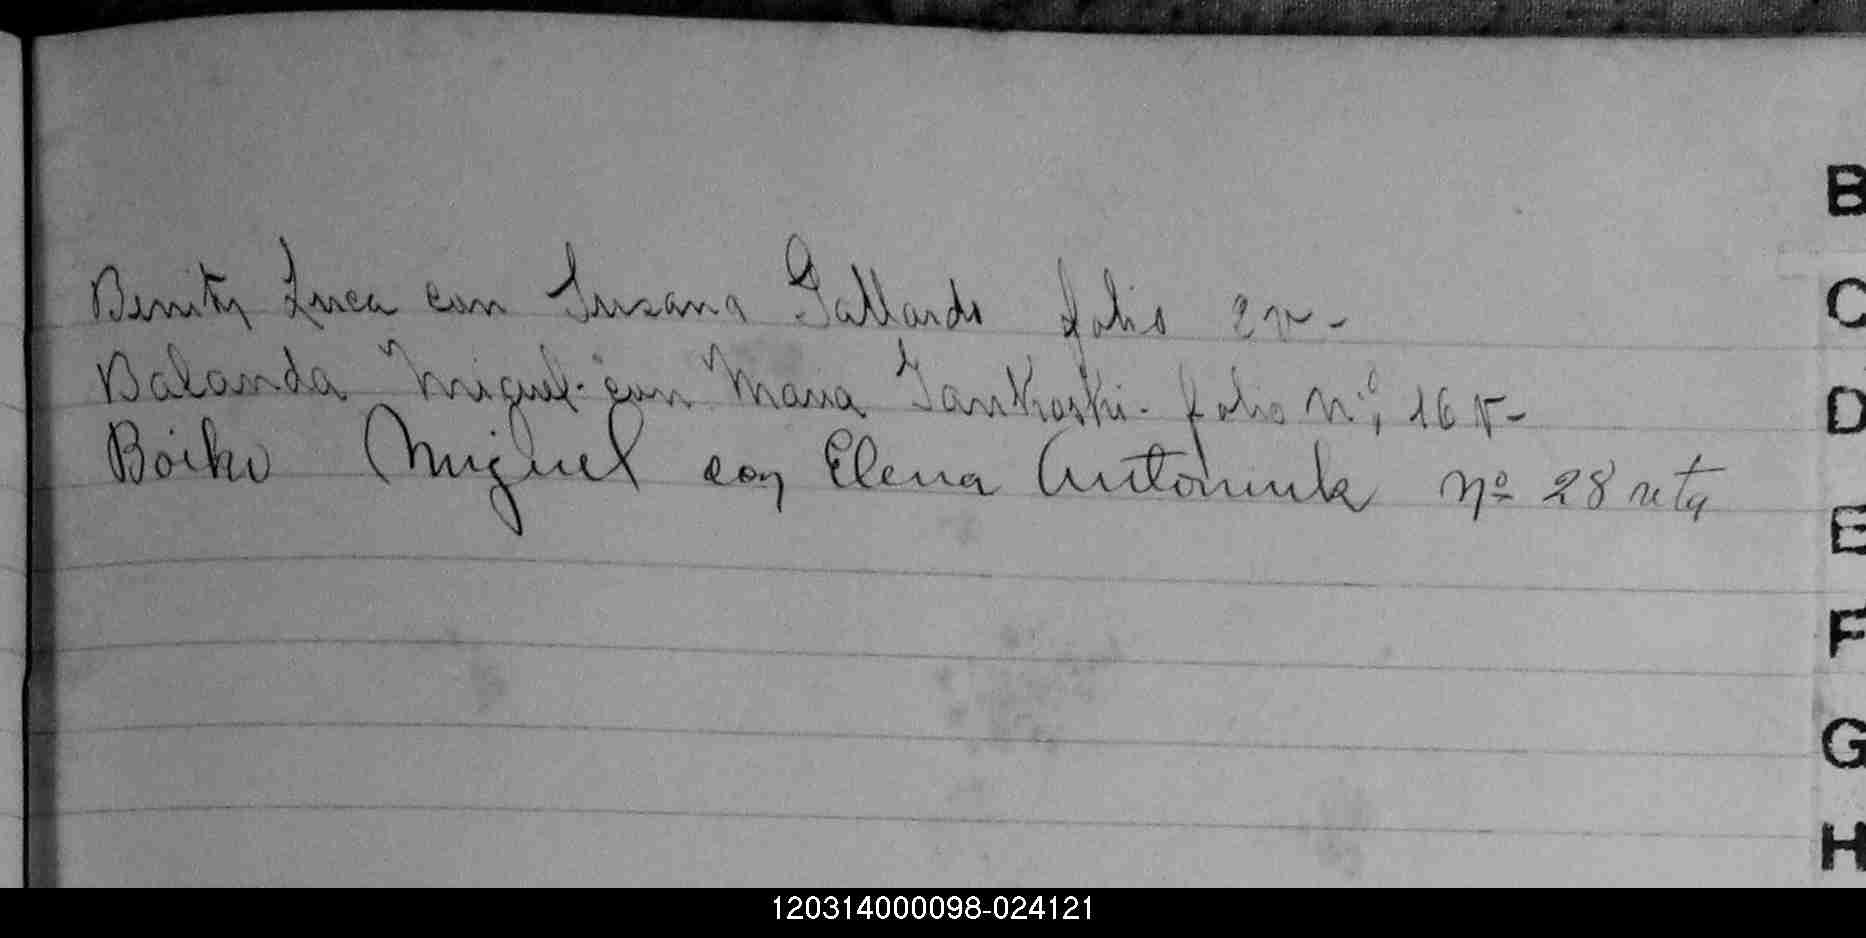 B
Benitez Luca con Susana Gallardo folio 2 v -
C
Balanda Miguel con Maria Jankoski - folio Nº, 16 v -
D
Boiko Miguel con Elena Antoniuk Nº 28 vta
E
F
G
H
120314000098-024121